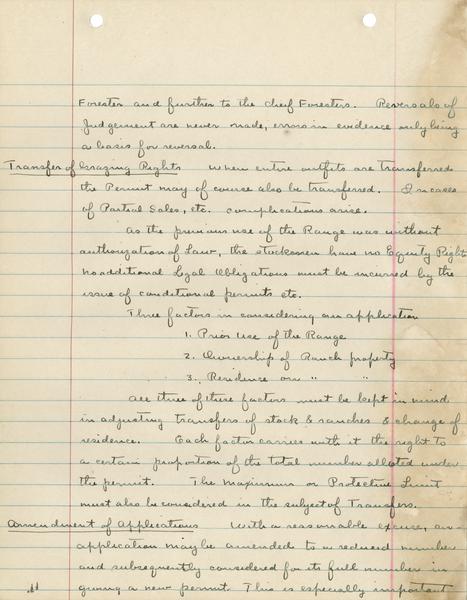 Forester and further to the cheif Foresters. Reversals of
Judgement are never made, errors in evidence only being
a basis for reversal.
Transfer of Grazing Rights When entire outfits are transferred
the Permit may of course also be transferred. In cases
of Partial Sales, etc. complications arise.
As the previous use of the Range was without
authorization of Law, the stockmen have no Equity Rights
no additional Legal Obligations must be incurred by the
issue of conditional permits etc.
Three factors in considering an application
1. Prior Use of the Range
2. Ownership of Ranch property
3. Residence on " "
All three of these factors must be kept in mind
in adjusting transfers of stock & ranches & change of
residence. Each factor carries with it the right to
a certain proportion of the total number allotted under
the permit. The maximum or Protective Limit
must also be considered in the subject of Transfers.
Amendment of Applications With a reasonable excuse, an
application may be amended to a reduced number
and subsequently considered for its full number in
giving a new permit. This is especially important